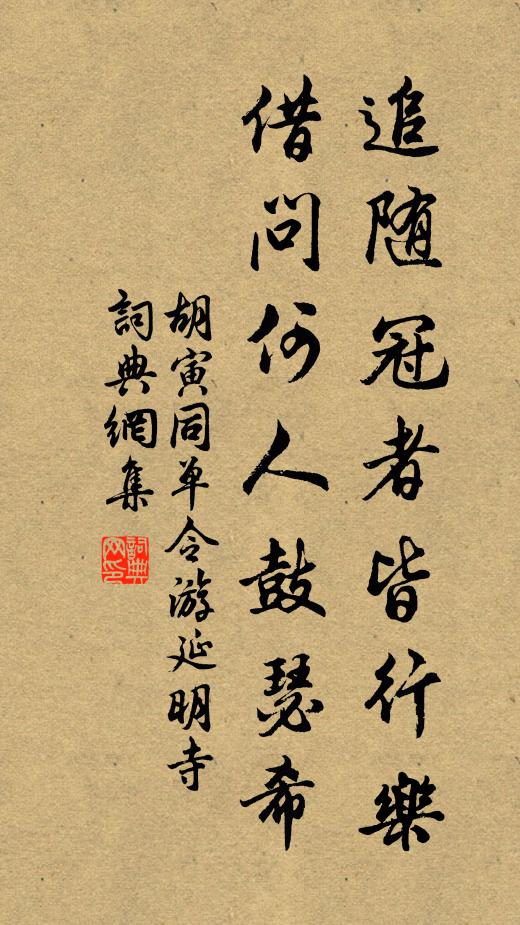 追随冠者皆行樂
借問何人鼓瑟希
胡寅同单令游延明寺
詞典網集
詞典網印